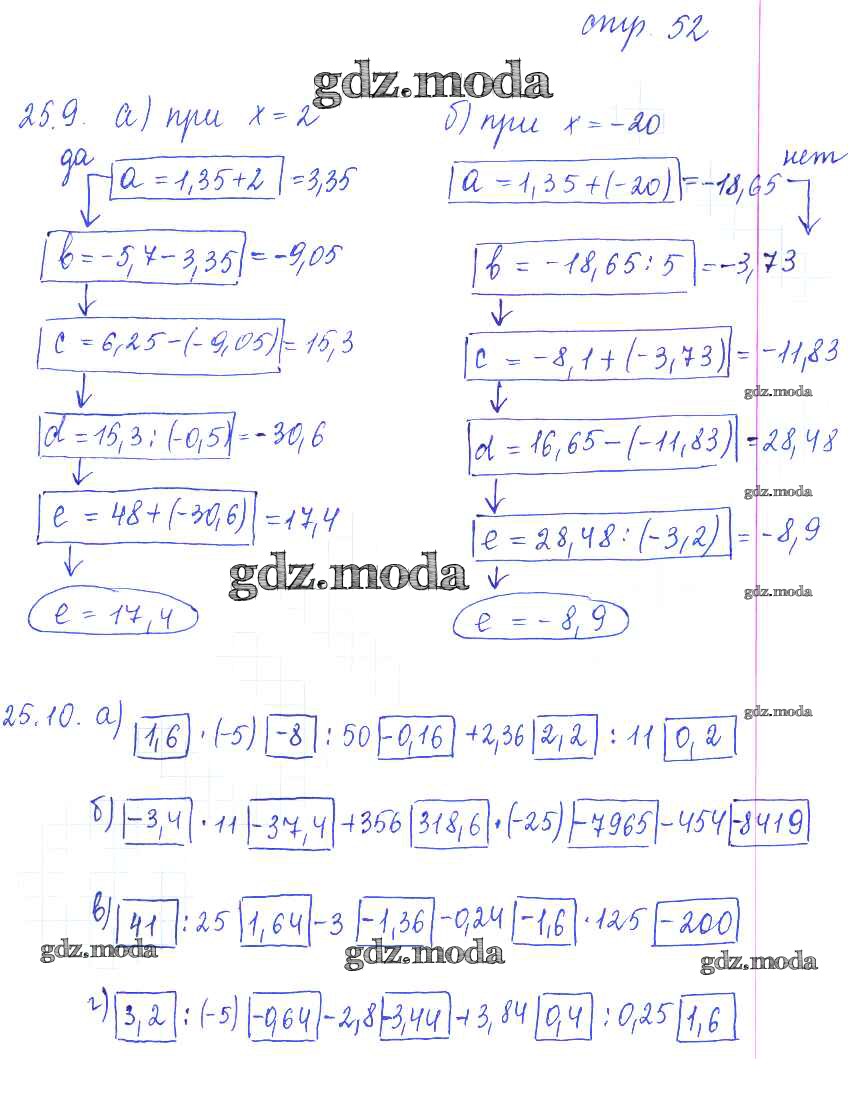 стр. 52
gdz.moda
25.9. а) при x = 2
да
a = 1,35+2 = 3,35
b = -5,7 - 3,35 = -9,05
c = 6,25-(-9,05) = 15,3
d = 15,3 : (-0,5) = -30,6
e = 48+(-30,6) = 17,4
e = 17,4
б) при x = -20
нет
a = 1,35+(-20) = -18,65
b = -18,65 : 5 = -3,73
c = -8,1+(-3,73) = -11,83
gdz.moda
d = 16,65-(-11,83) = 28,48
gdz.moda
e = 28,48 : (-3,2) = -8,9
gdz.moda
gdz.moda
e = -8,9
25.10. а) 1,6 · (-5) -8 : 50 -0,16 +2,36 2,2 : 11 0,2
gdz.moda
б) -3,4 · 11 -37,4 +356 318,6 · (-25) -7965 -454 -8419
в) 41 : 25 1,64 -3 -1,36 -0,24 -1,6 · 125 -200
gdz.moda gdz.moda gdz.moda
г) 3,2 : (-5) -0,64 -2,8 -3,44 +3,84 0,4 : 0,25 1,6